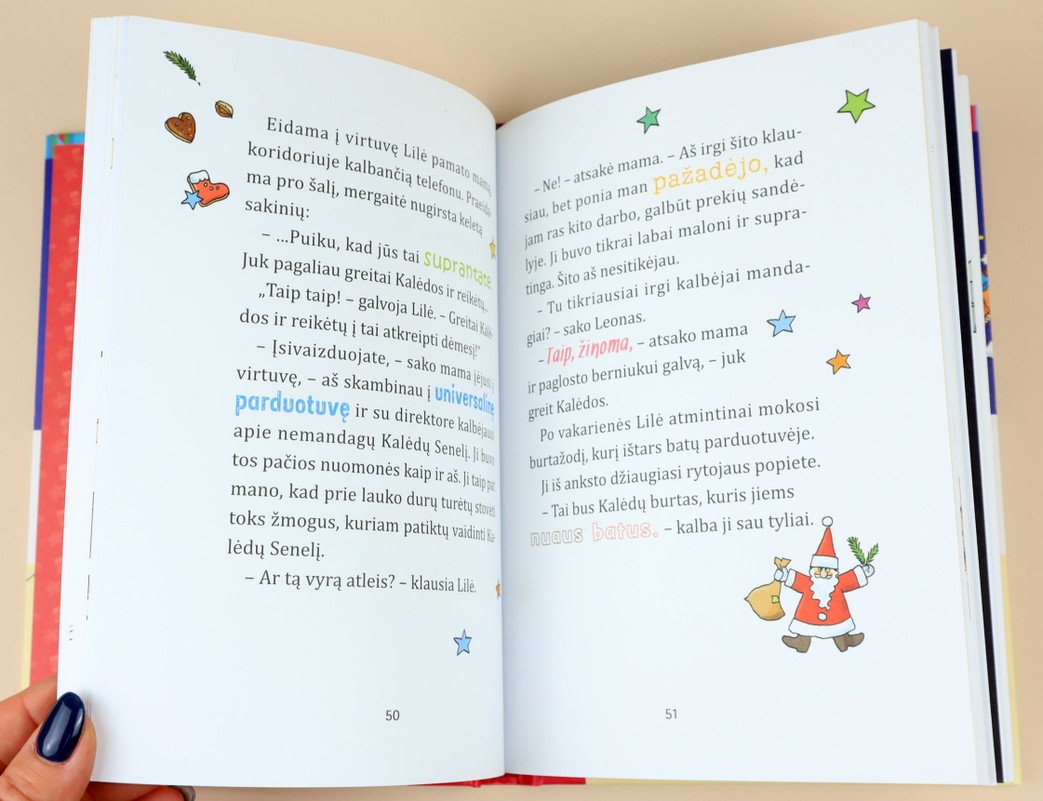 Eidama į virtuvę Lilė pamato mamą
koridoriuje kalbančią telefonu. Praeida-
ma pro šalį, mergaitė nugirsta keletą
sakinių:
– ...Puiku, kad jūs tai suprantate.
Juk pagaliau greitai Kalėdos ir reikėtų...
„Taip taip! – galvoja Lilė. – Greitai Kalė-
dos ir reikėtų į tai atkreipti dėmesį!“
– Įsivaizduojate, – sako mama įėjusi į
virtuvę, – aš skambinau į universalinę
parduotuvę ir su direktore kalbėjausi
apie nemandagų Kalėdų Senelį. Ji buvo
tos pačios nuomonės kaip ir aš. Ji taip pat
mano, kad prie lauko durų turėtų stovėti
toks žmogus, kuriam patiktų vaidinti Ka-
lėdų Senelį.
– Ar tą vyrą atleis? – klausia Lilė.
50
– Ne! – atsakė mama. – Aš irgi šito klau-
siau, bet ponia man pažadėjo, kad
jam ras kito darbo, galbūt prekių sandė-
lyje. Ji buvo tikrai labai maloni ir supra-
tinga. Šito aš nesitikėjau.
– Tu tikriausiai irgi kalbėjai manda-
giai? – sako Leonas.
– Taip, žinoma, – atsako mama
ir paglosto berniukui galvą, – juk
greit Kalėdos.
Po vakarienės Lilė atmintinai mokosi
burtažodį, kurį ištars batų parduotuvėje.
Ji iš anksto džiaugiasi rytojaus popiete.
– Tai bus Kalėdų burtas, kuris jiems
nuaus batus. – kalba ji sau tyliai.
51